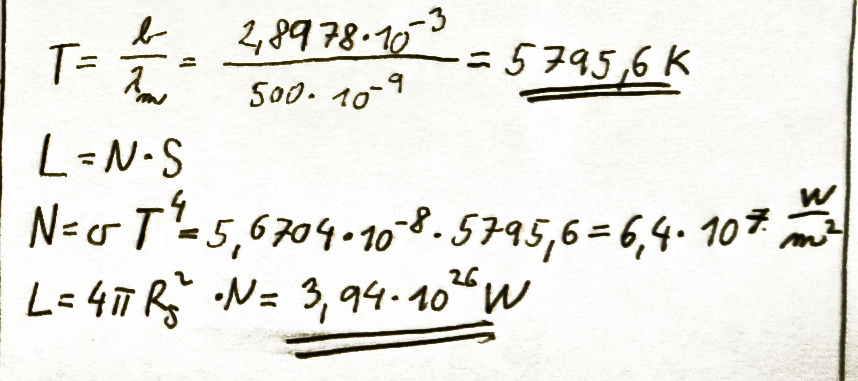 T = b/λm = 2,8978·10⁻³/500·10⁻⁹ = 5795,6 K
L = N·S
N = σ T⁴ = 5,6704·10⁻⁸·5795,6 = 6,4·10⁷ W/m²
L = 4π Rs² ·N = 3,94·10²⁶ W